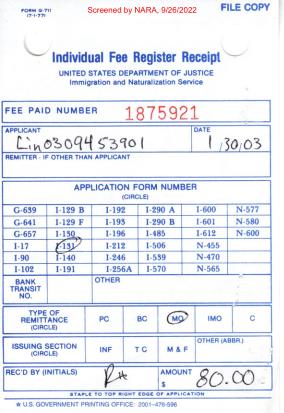 FORM G-711
17-1-77)
Screened by NARA, 9/26/2022
FILE COPY
Individual Fee Register Receipt
UNITED STATES DEPARTMENT OF JUSTICE
Immigration and Naturalization Service
FEE PAID NUMBER 1875921
APPLICANT
Lin0309453901
DATE
1/30/03
REMITTER - IF OTHER THAN APPLICANT
APPLICATION FORM NUMBER
(CIRCLE)
G-639 I-129 B I-192 I-290 A I-600 N-577
G-641 I-129 F I-193 I-290 B I-601 N-580
G-657 I-130 I-196 I-485 I-612 N-600
I-17 I-131 I-212 I-506 N-455
I-90 I-140 I-246 I-539 N-470
I-102 I-191 I-256A I-570 N-565
BANK TRANSIT NO.
OTHER
TYPE OF REMITTANCE (CIRCLE) PC BC MO IMO C
ISSUING SECTION (CIRCLE) INF T C M & F OTHER (ABBR.)
REC'D BY (INITIALS) AMOUNT
$ 80.00
STAPLE TO TOP RIGHT EDGE OF APPLICATION
☆ U.S. GOVERNMENT PRINTING OFFICE: 2001-476-596